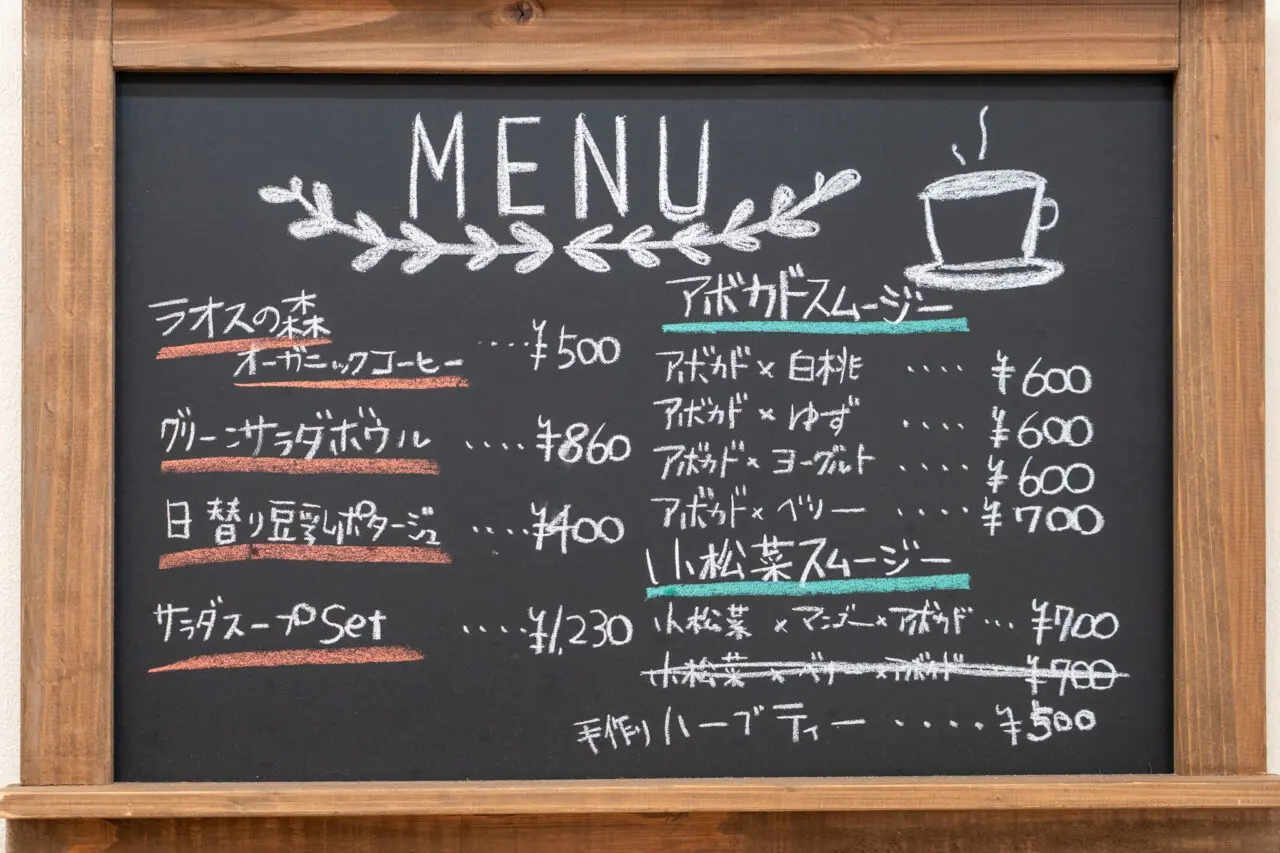 MENU
ラオスの森
オーガニックコーヒー ････ ¥500
グリーンサラダボウル ････ ¥860
日替り豆乳ポタージュ ････ ¥400
サラダスープSet ････ ¥1,230
アボカドスムージー
アボカド×白桃 ････ ¥600
アボカド×ゆず ････ ¥600
アボカド×ヨーグルト ････ ¥600
アボカド×ベリー ････ ¥700
小松菜スムージー
小松菜×マンゴー×アボカド ･･･ ¥700
小松菜×ベリー×アボカド ¥700
手作りハーブティー ････ ¥500